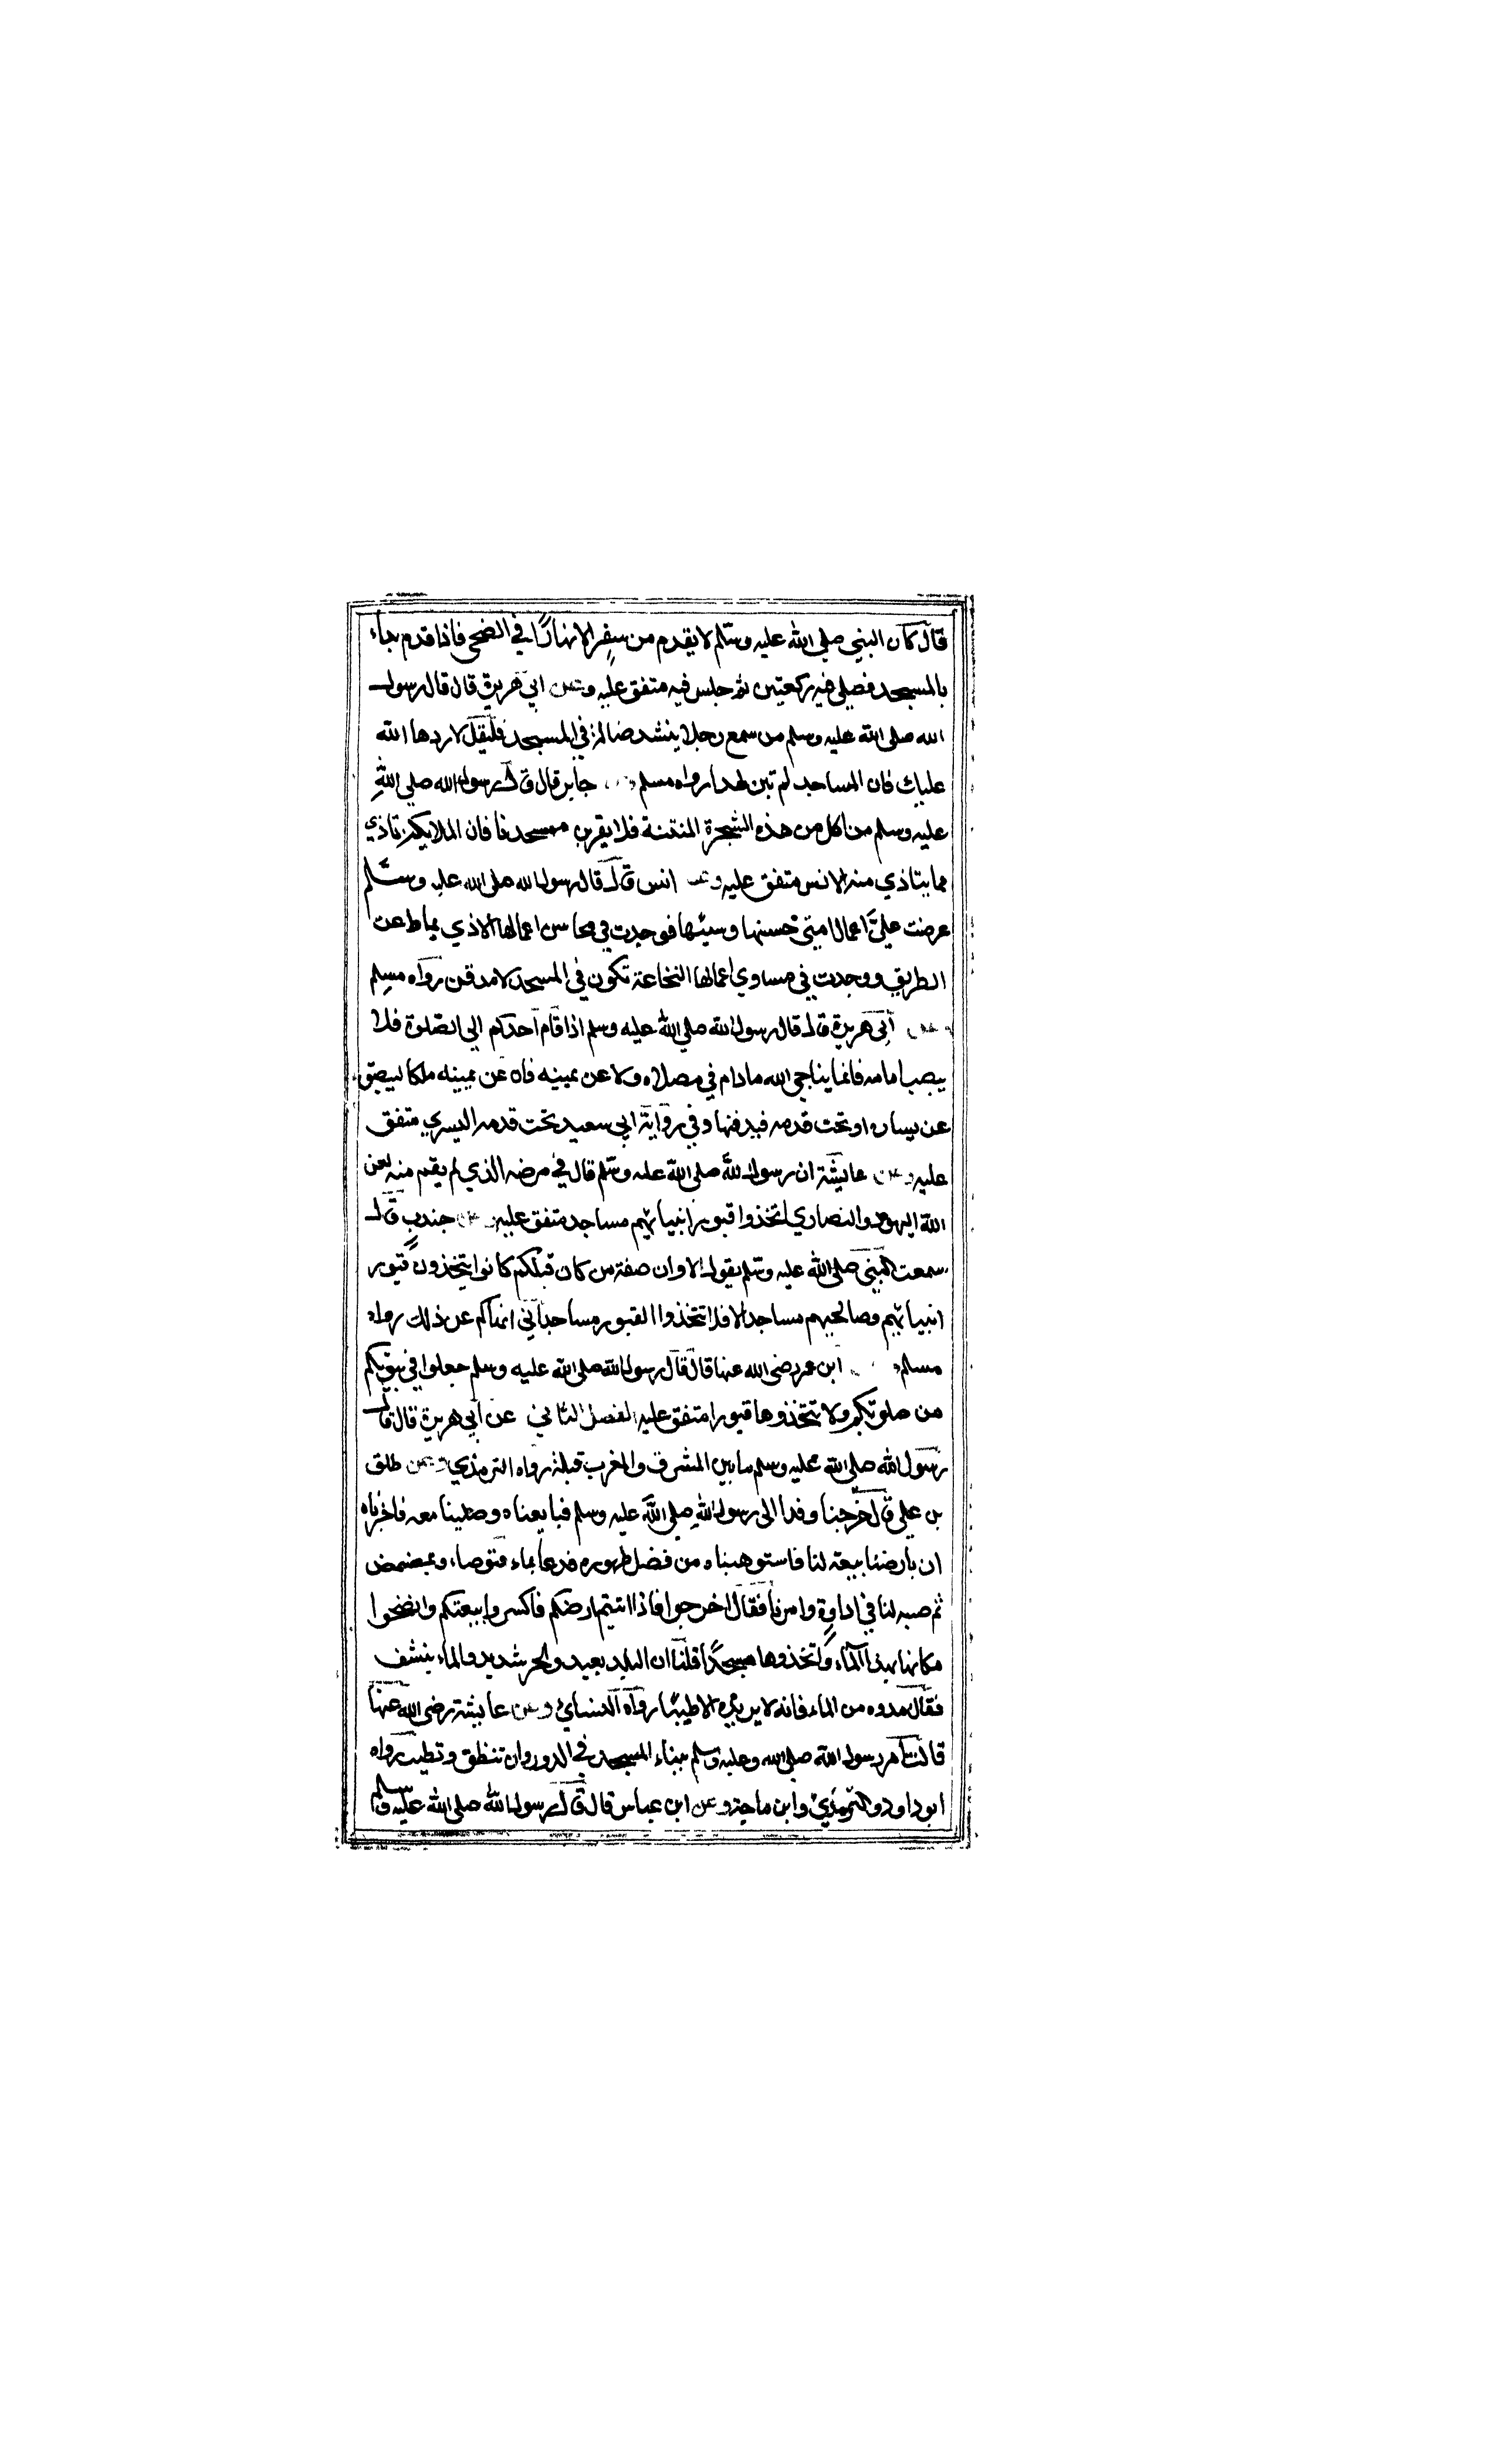 قال كان النبي صلي الله عليه وسلم لا يقدم من سفر الا نهارًا في الضحي فاذا قدم بداء
بالمسجد فصلي فيه ركعتين ثم جلس فيه متفق عليه وعن ابي هريرة قال قال رسول
الله صلى الله عليه وسلم من سمع رجلا ينشد ضالة في المسجد فليقل لا ردها الله
عليك فان المساجد لم تبن لهذا رواه مسلم جابر قال قال رسول الله صلي الله
عليه وسلم من اكل من هذه الشجرة المنتنة فلا يقربن مسجدنا فان الملايكة تاذي
مما يتاذي منه الانس متفق عليه وعن انس قال قال رسول الله صلى الله عليه وسلم
عرضت عليَّ اعمال امتي حسنها وسيئها فوجدت في محاسن اعمالها الاذي يماط عن
الطريق ووجدت في مساوي اعمالها النخاعة تكون في المسجد لا مدفن رواه مسلم
وعن ابي هريرة قال قال رسول الله صلي الله عليه وسلم اذا قام احدكم الي الصلوة فلا
يبصب امامه فانما يناجي الله مادام في مصلاه ولا عن يمينه فان عن يمينه ملكا ليبصق
عن يساره او تحت قدمه فيدفنها وفي رواية ابي سعيد تحت قدمه اليسري متفق
عليه وعن عايشة ان رسول الله صلى الله عليه وسلم قال في مرضه الذي لم يقم منه لعن
الله اليهود والنصاري اتخذوا قبور انبيائهم مساجد متفق عليه وعن جندب قال
سمعت النبي صلي الله عليه وسلم يقول الا وان صفة من كان قبلكم كانوا يتخذون قبور
انبيائهم وصالحيهم مساجد الا فلا تتخذوا القبور مساجد اني انهاكم عن ذلك رواه
مسلم ابن عمر رضى الله عنها قال قال رسول الله صلى الله عليه وسلم جعلوا في بيوتكم
من صلوتكم ولا تتخذوها قبورا متفق عليه الفصل الثاني عن ابي هريرة قال قال
رسول الله صلي الله عليه وسلم ما بين المشرق والمغرب قبلة رواه الترمذي وعن طلق
بن علي قال خرجنا وفدا الى رسول الله صلي الله عليه وسلم فبايعناه وصلينا معه فاخبرناه
ان بارضنا بيعة لنا فاستوهبناه من فضل طهوره فدعا بماء فتوضاء وتمضمض
ثم صبه لنا في اداوة وامرنا فقال اخرجوا فاذا اتيتم ارضكم فاكسروا بيعتكم وانضحوا
مكانها بهذا الماء واتخذوها مسجدًا قلنا ان البلد بعيد والحر شديد والماء ينشف
فقال مدوه من الماء فانه لا يزيده الا طيبًا رواه النسائ وعن عايشة رضى الله عنها
قالت امر رسول الله صلي الله وعليه وسلم ببناء المسجد في الدور وان تنظق وتطيب رواه
ابو داود والترمذي وابن ماجة وعن ابن عباس قال قال رسول الله صلى الله عليه وسلم